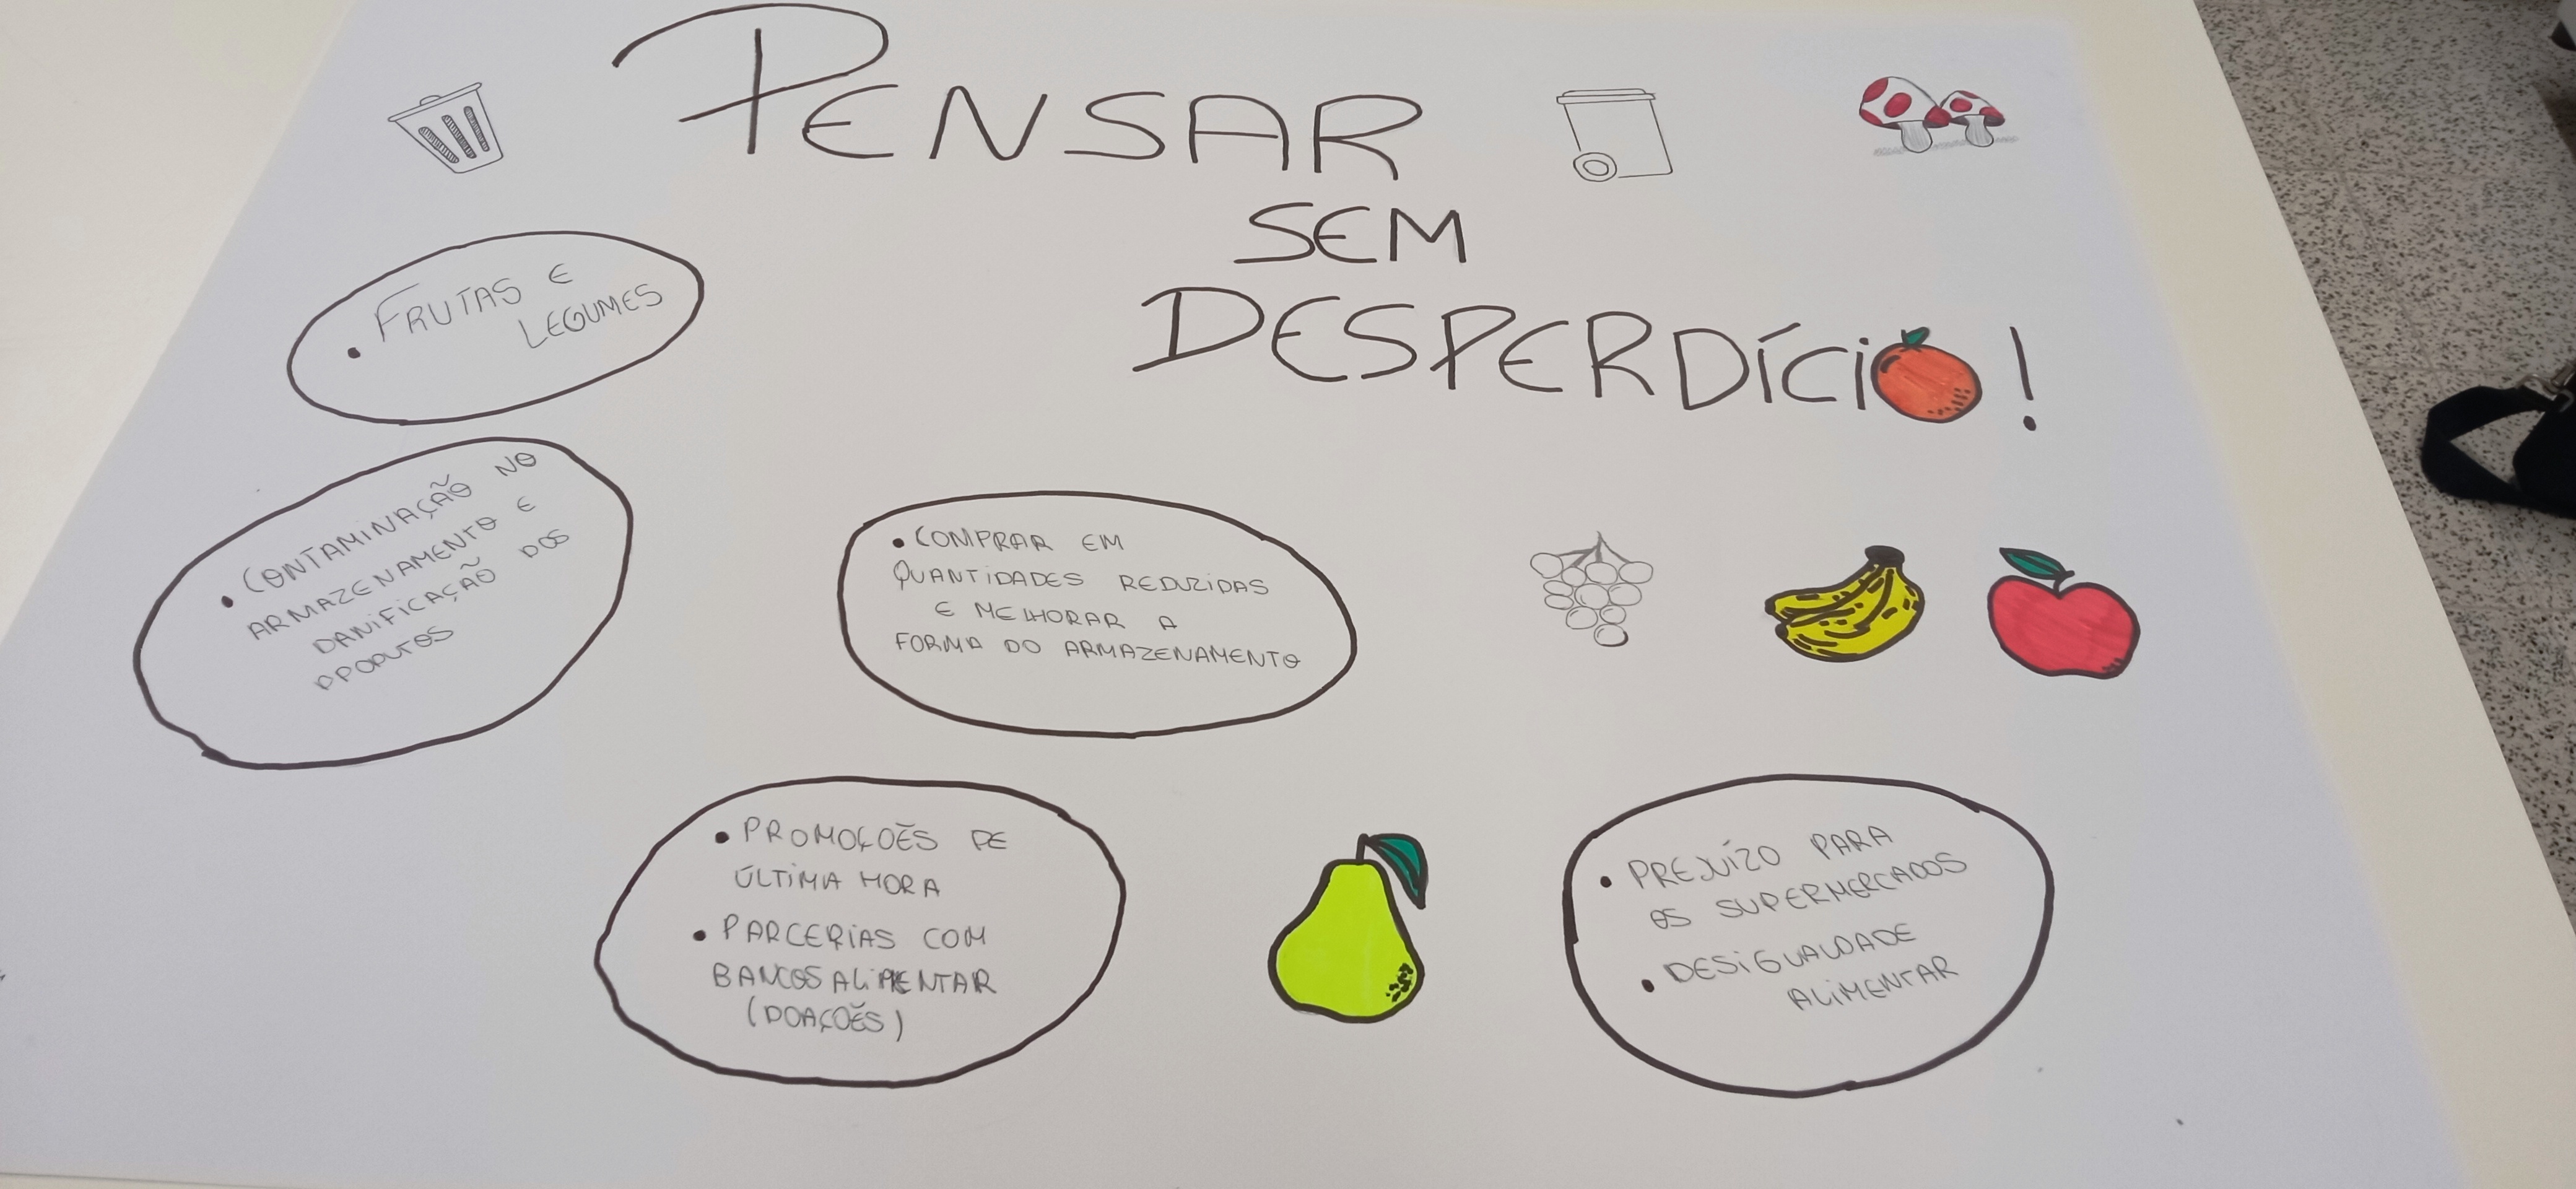 PENSAR
SEM
DESPERDÍCIO!
• FRUTAS E
LEGUMES
• CONTAMINAÇÃO NO
ARMAZENAMENTO E
DANIFICAÇÃO DOS
PRODUTOS
• COMPRAR EM
QUANTIDADES REDUZIDAS
E MELHORAR A
FORMA DO ARMAZENAMENTO
• PROMOÇÕES DE
ÚLTIMA HORA
• PARCERIAS COM
BANCOS ALIMENTAR
(DOAÇÕES)
• PREJUÍZO PARA
OS SUPERMERCADOS
• DESIGUALDADE
ALIMENTAR